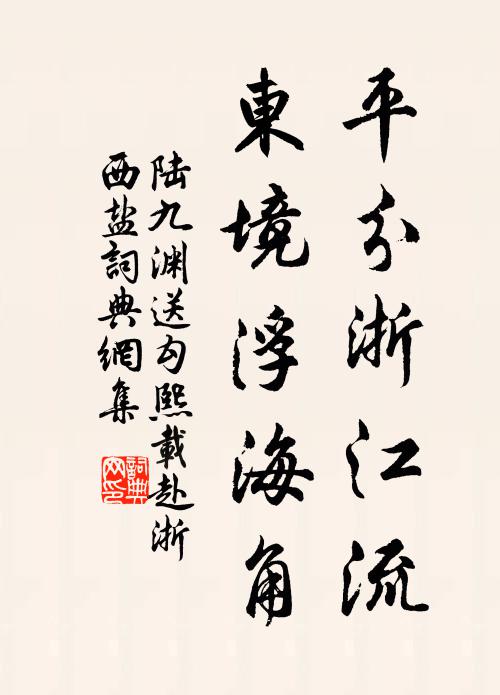 平分浙江流
東境浮海角
陆九渊送勾熙載赴浙
西盐詞典網集
詞典
网印